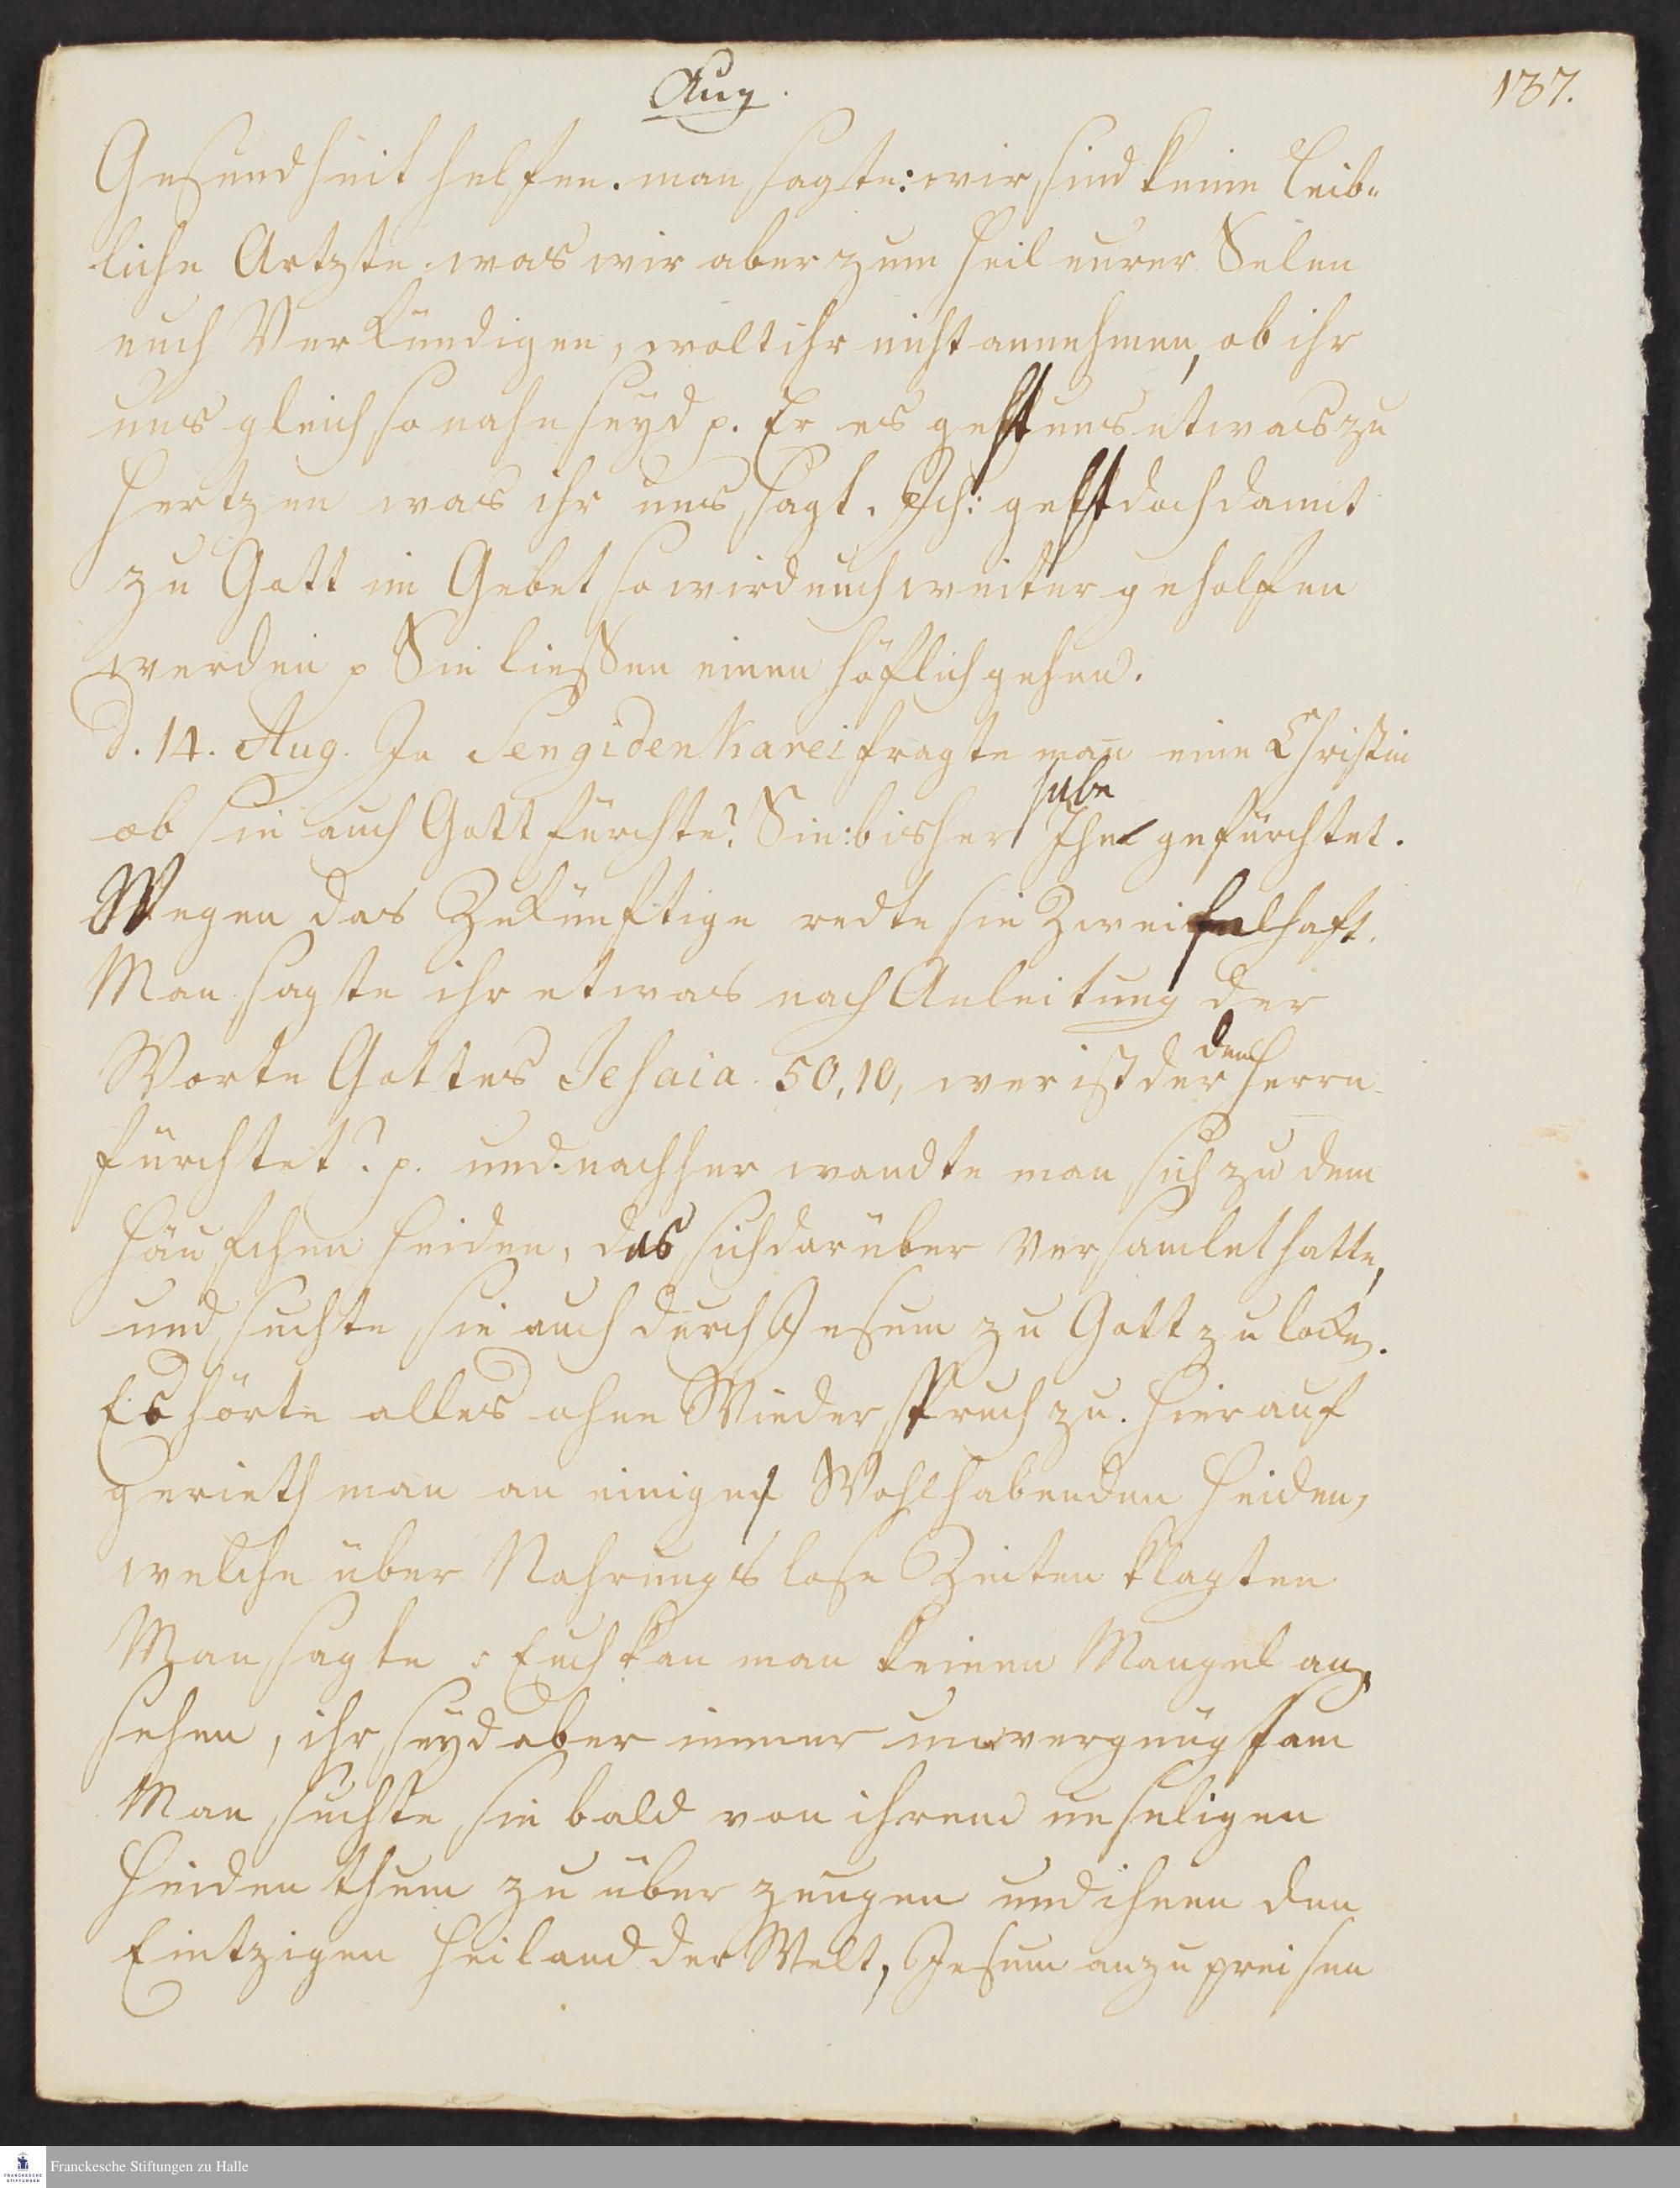 Aug.
137.
Gesundheit helfen. man sagte: wir sind keine leib-
liche Artzte. was wir aber zum Heil eurer Selen
euch Verkündigen, wolt ihr nicht annehmen, ob ihr
uns gleich so nahe seyd p. Er es geht uns etwas zu
Hertzen was ihr uns sagt. Ich: geht doch damit
zu Gott im Gebet so wird euch weiter geholfen
werden p Sie ließen einen höflich gehen.
d. 14. Aug. In Sengidenkarei fragte man eine Christin
ob sie auch Gott fürchte? Sie: bisher habe Ihn gefürchtet.
Wegen das Zukünftige redte sie Zweifelhaft.
Man sagte ihr etwas nach Anleitung der
Worte Gottes Jesaia. 50,10, wer ist der den Herrn
fürchtet? p. und nachher wandte man sich zu dem
Häufchen Heiden, das sich darüber versamlet hatte,
und suchte sie auch durch Jesum zu Gott zu locken.
Es hörte alles ohne Wiederspruch zu. Hierauf
gerieth man an einige Wohlhabenden Heiden,
welche über Nahrungslose Zeiten klagten
Man sagte: Euch kan man keinen Mangel an-
sehen, ihr seyd aber immer unvergnügsam
Man suchte sie bald von ihrem unseligen
Heidenthum zu überzeugen und ihnen den
Eintzigen Heiland der Welt, Jesum anzupreisen
Franckesche Stiftungen zu Halle
FRANCKESCHE
STIFTUNGEN